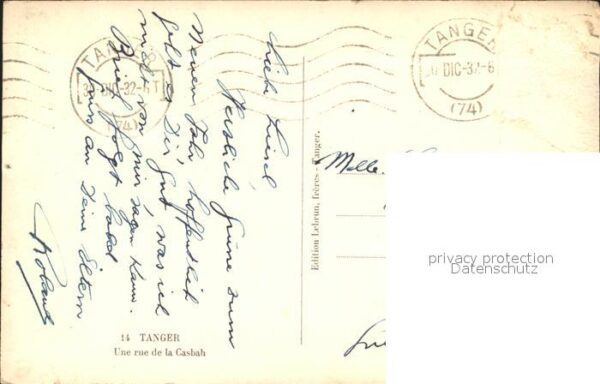 Liebe Liesel,
Herzliche Grüsse zum
Neuen Jahr, hoffentlich
geht es Dir gut, was ich
nicht von mir sagen kann.
Brief folgt bald
Gruss an Deine Eltern
Roland
TANGER
30 DIC-32-6T
(74)
TANGER
DIC-32-6
(74)
Melle.
Edition Lebrun, frères - Tanger.
14 TANGER
Une rue de la Casbah
privacy protection
Datenschutz